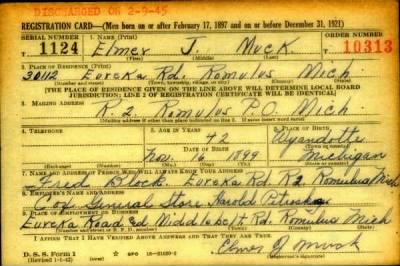 DISCHARGED ON 2-9-45
REGISTRATION CARD—(Men born on or after February 17, 1897 and on or before December 31, 1921)
SERIAL NUMBER 1. NAME (Print) ORDER NUMBER
T 1124 Elmer J. Muck 10313
(First) (Middle) (Last)
2. PLACE OF RESIDENCE (Print)
30112 Eureka Rd. Romulus Mich
(Number and street) (Town, township, village, or city) (County) (State)
[THE PLACE OF RESIDENCE GIVEN ON THE LINE ABOVE WILL DETERMINE LOCAL BOARD
JURISDICTION; LINE 2 OF REGISTRATION CERTIFICATE WILL BE IDENTICAL]
3. MAILING ADDRESS
R. 2. Romulus P.O. Mich.
[Mailing address if other than place indicated on line 2. If same insert word same]
4. TELEPHONE 5. AGE IN YEARS 6. PLACE OF BIRTH
42 Wyandotte
DATE OF BIRTH (Town or county)
Nov. 16 1899 Michigan
(Exchange) (Number) (Mo.) (Day) (Yr.) (State or country)
7. NAME AND ADDRESS OF PERSON WHO WILL ALWAYS KNOW YOUR ADDRESS
Fred Block. Eureka Rd R2 Romulus Mich
8. EMPLOYER'S NAME AND ADDRESS
General Store Harold
9. PLACE OF EMPLOYMENT OR BUSINESS
Eureka Road Middlebelt Rd. Romulus Mich
(Number and street or R. F. D. number) (Town) (County) (State)
I AFFIRM THAT I HAVE VERIFIED ABOVE ANSWERS AND THAT THEY ARE TRUE.
D. S. S. Form 1
(Revised 1-1-42) (over) GPO 16—21630-2
Elmer J Muck
(Registrant's signature)